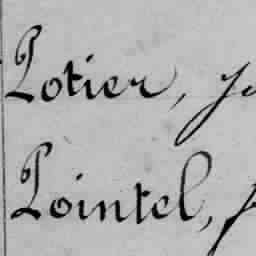 Potier,
Pointel,